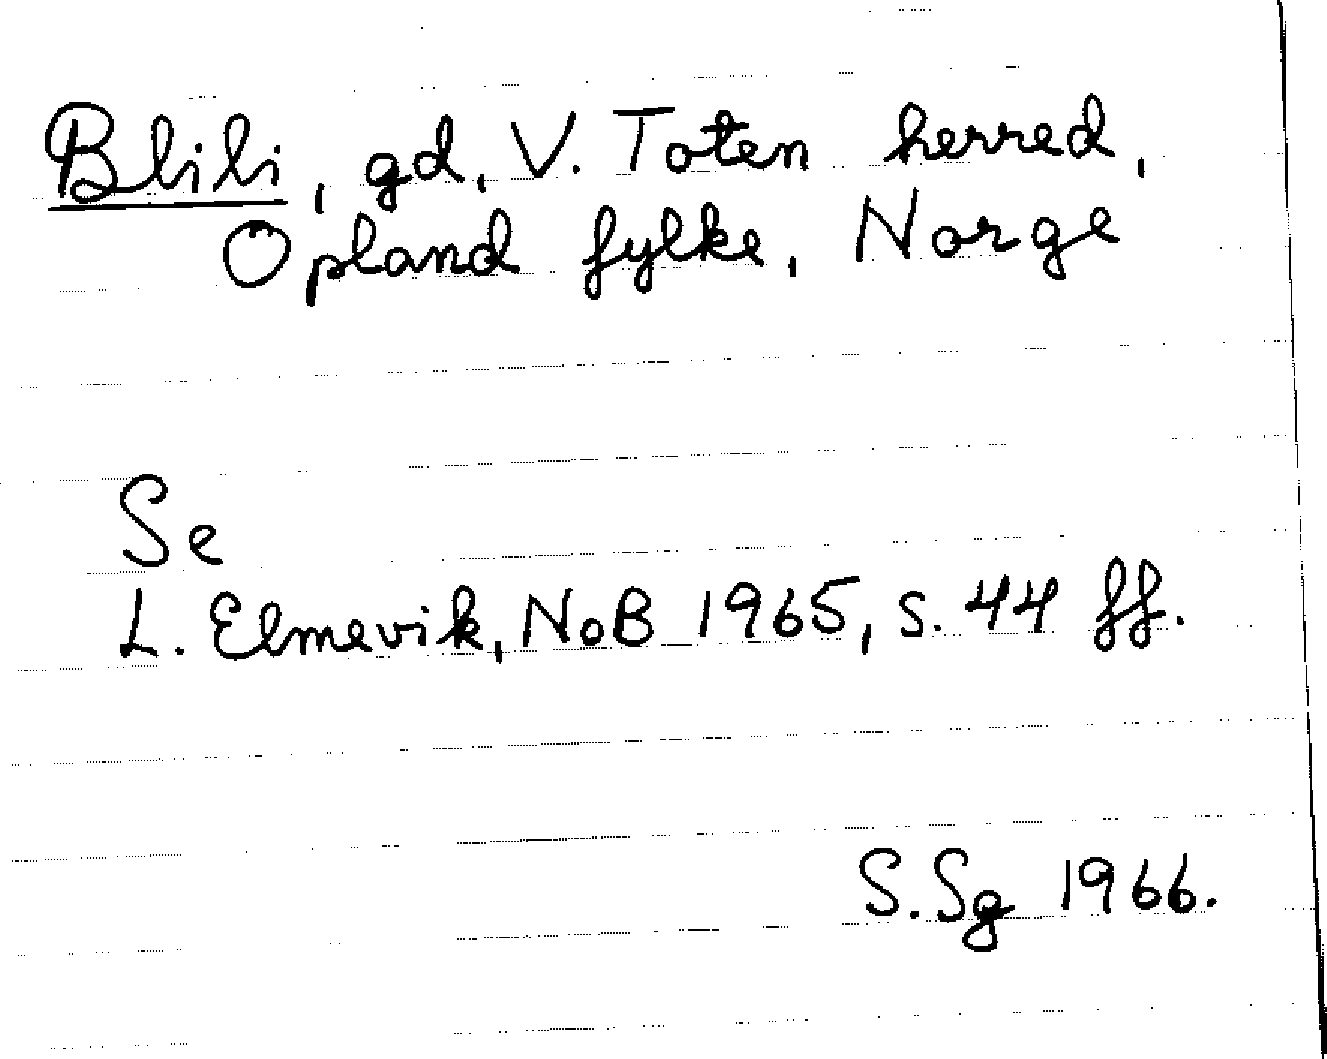 Blili, gd, V. Toten herred,
Opland fylke, Norge
Se
L. Elmevik, NoB 1965, s. 44 ff.
S.Sg 1966.